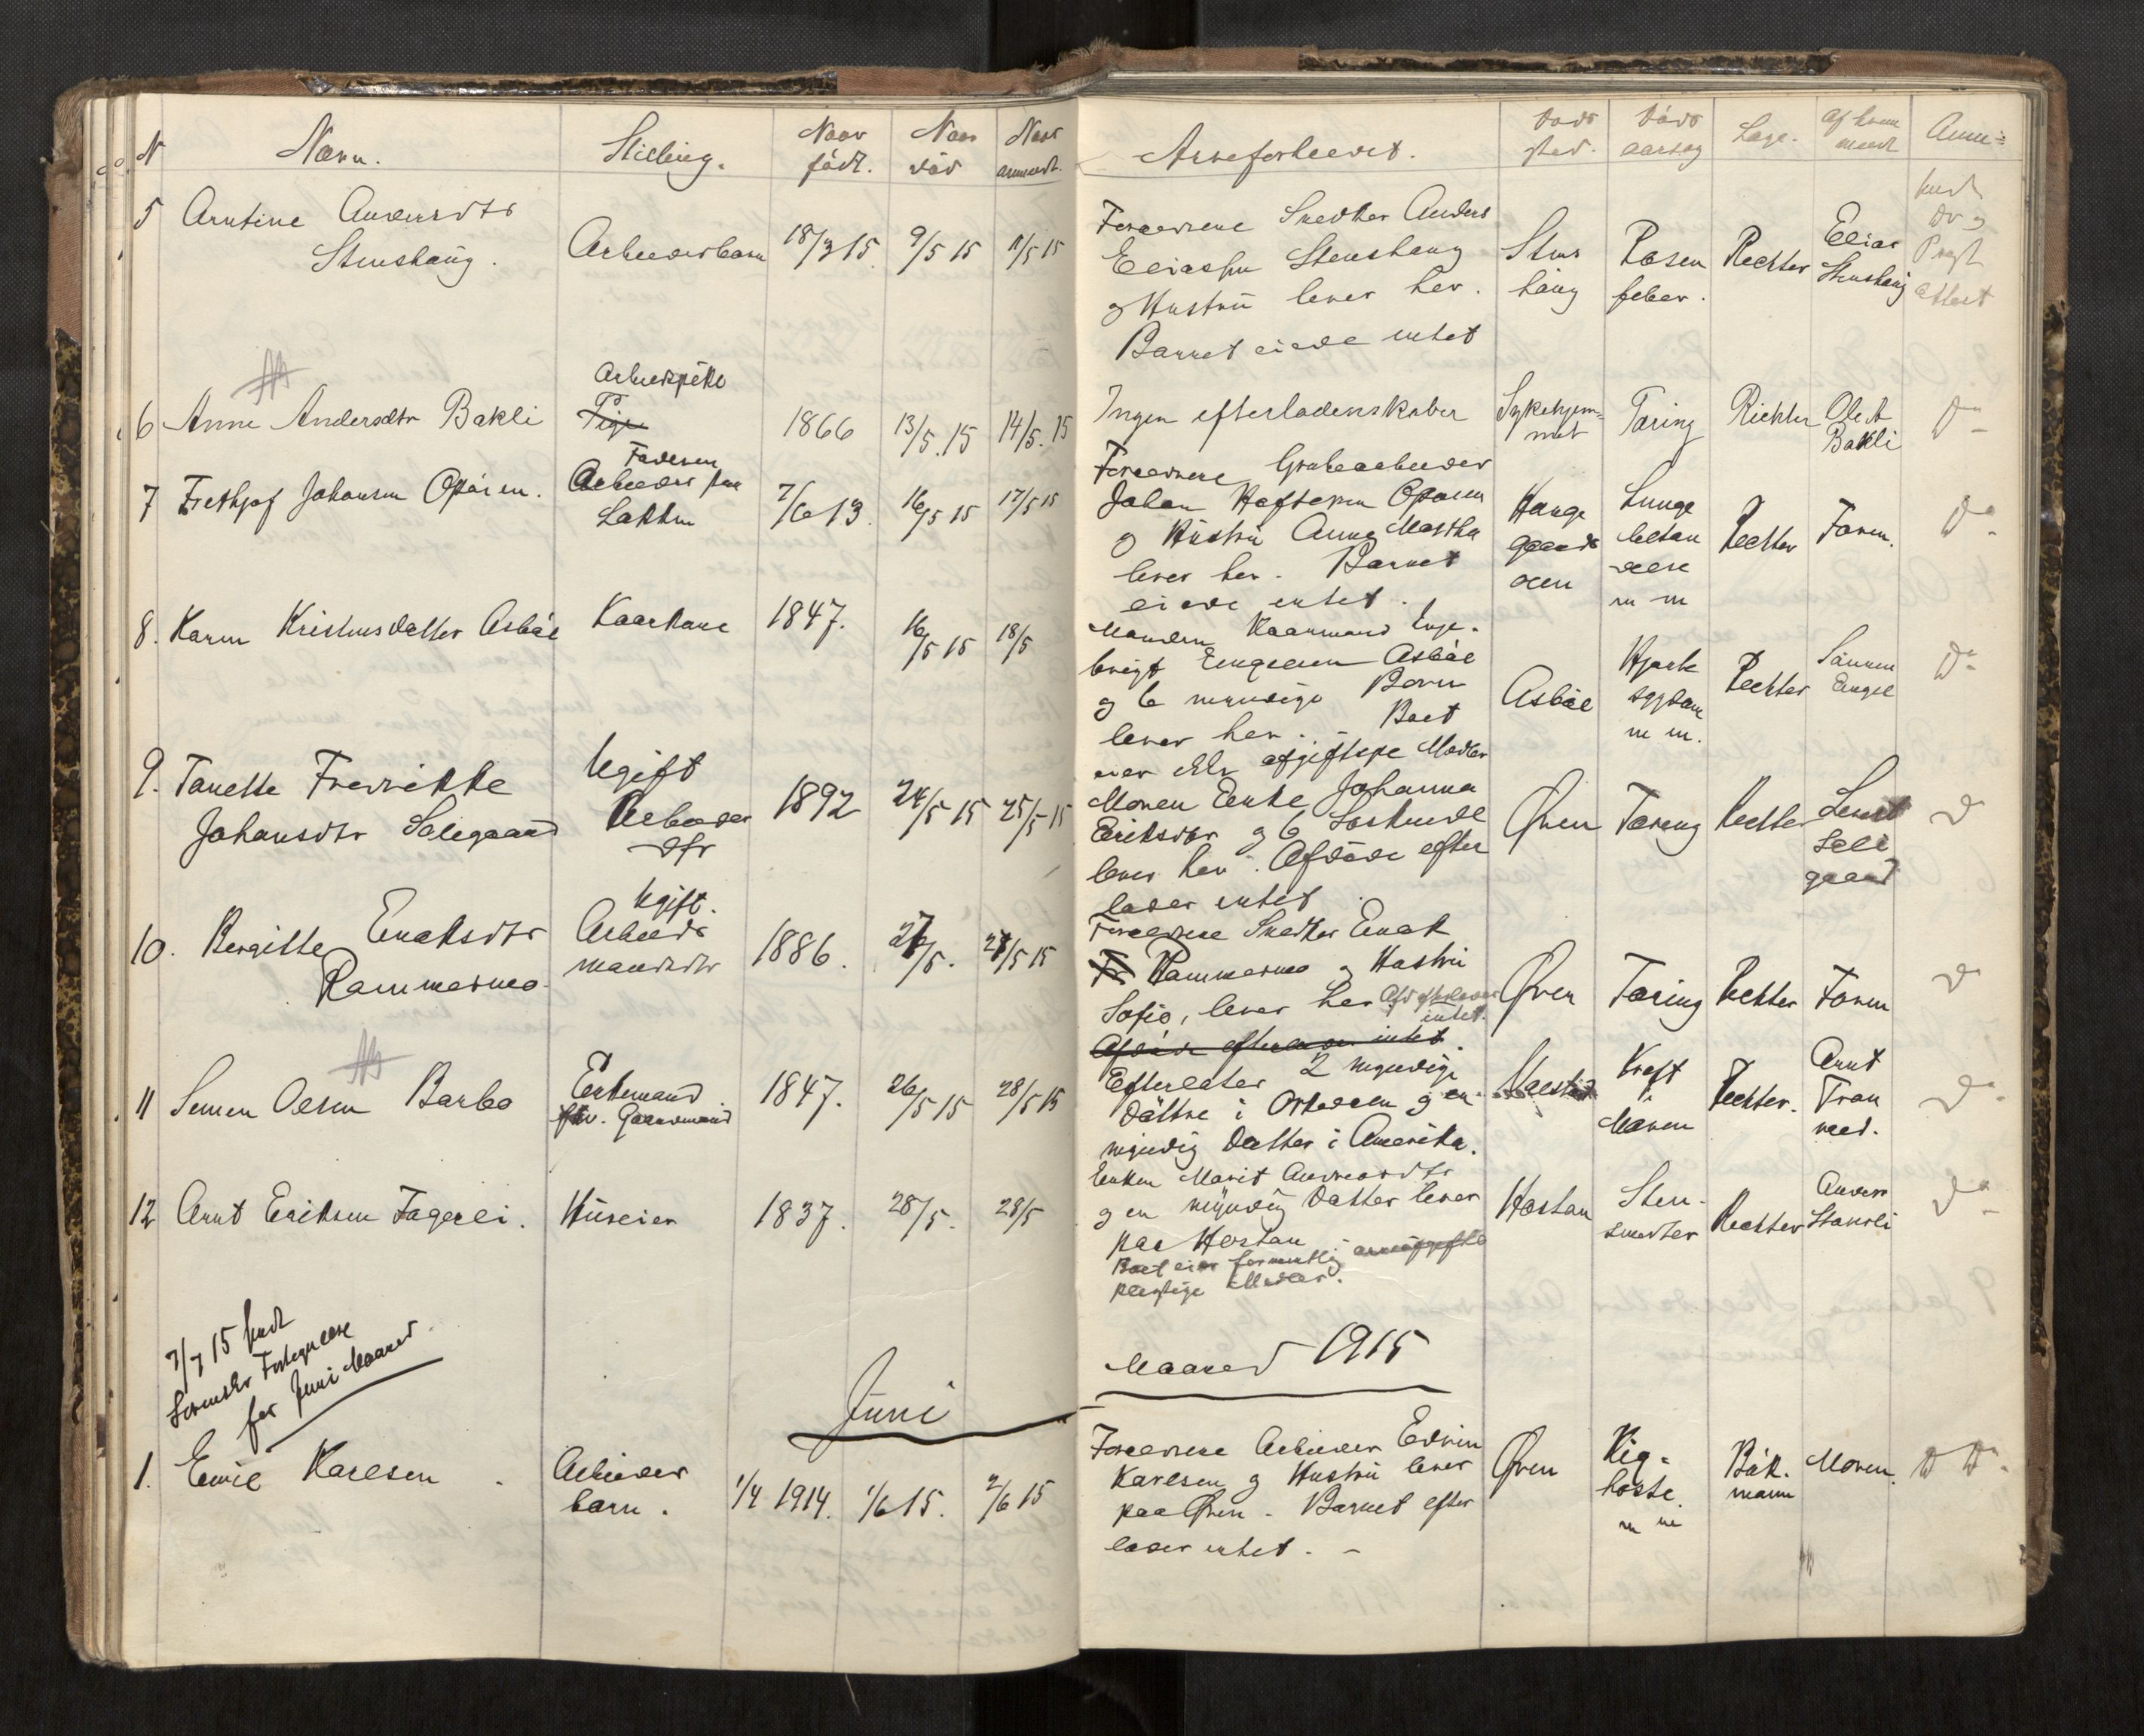 N Navn. Stilling. Naar født. Naar død Naar anmeldt.
Arveforholdet. Døds sted. Døds aarsag Læge. Af hvem meldt Anm:
5 Arntine Andersdtr
Stenshaug.
Arbeiderbarn 18/3 15 9/5 15 11/5 15
Forældrene Snedker Anders
Eliassen Stenshaug
og Hustru lever her.
Barnet eiede intet
Stens
haug
Rosen
feber.
Richter
Elias
Stenshaug
attest
6 Anne Andersdtr Bakli
Arbeiderpike
Pige
1866 13/5.15 14/5.15
Ingen efterladenskaber
Sykehjem-
met
Tæring Richter Ole A
Bakli
Do
7 Frethjof Johansen Opøien.
Faderen
Arbeider paa
Løkken
7/6 13. 16/5 15 17/5 15
Forældrene Grubearbeider
Johan Hoftesen Opøien
og Hustru Anne Martha
lever her. Barnet
eiede intet.
Hauge
gaards
øien
Lunge
betæn
delse
m m
Richter Faren. Do
8. Karen Kristensdatter Asbøl Kaarkone 1847. 16/5 15 18/5
Manden Kaarmand Inge-
brigt Engelsen Asbøl
og 6 myndige Børn
lever her. - Boet
eier ikke afgiftspl Midler
Asbøl
Hjerte
sygdom
m m.
Richter
Sønnen
Engel
Do
9. Tanette Fredrikke
Johansdtr Soligaard
Ugift
Arbeider
dtr
1892 24/5 15 25/5 15
Moren Enke Johanna
Eriksdtr og 6 Søskende
lever her. Afdøde efter
lader intet
Øren Tæring Richter
Soli
gaard
D
10. Bergitte Enaksdtr
Rammesmo
Ugift.
Arbeids
mandsdtr
1886. 27/5. 28/5 15
Forældrene Snedker Enak
Rammesmo og Hustru
Sofie, lever her Afd efterlader
intet.
Afdøde efterlader intet.
Øren Tæring Richter Faren D
11 Simen Olsen Barbo
Enkemand
fhv. Gaardmand
1847. 26/5 15 28/5 15
Efterlater 2 myndige
Døttre i Orkedalen og en
myndig Datter i Amerika.
Kræft
i
Maven
Richter.
Arnt
Do
12 Arnt Eriksen Fagerli. Huseier 1837. 28/5. 28/5
Enken Marit Andreasdtr
og en myndig Datter lever
paa Hostan
Boet eier formentlig arveafgifts
pligtige Midler.
Hostan
Sten-
smerter
Richter
Do
7/7 15 sendt
Sorenskr Fortegnelse
for Juni Maaned
Juni
Maaned 1915
1. Emil Karlsen.
Arbeider
barn.
1/4 1914. 1/6 15. 2/6 15
Forældrene Arbeider Edvin
Karlsen og Hustru lever
paa Øren. Barnet efter
lader intet. -
Øren
Kig-
hoste.
m m
Bøk.
mann
Moren. D Do.